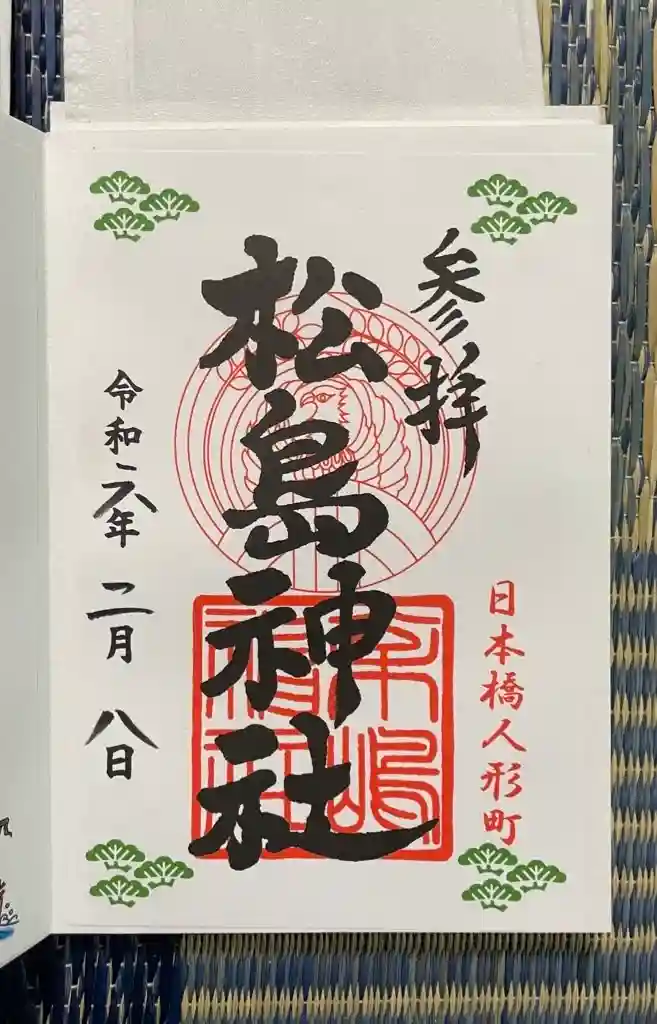 参拝
日本橋人形町
松島神社
令和六年二月八日